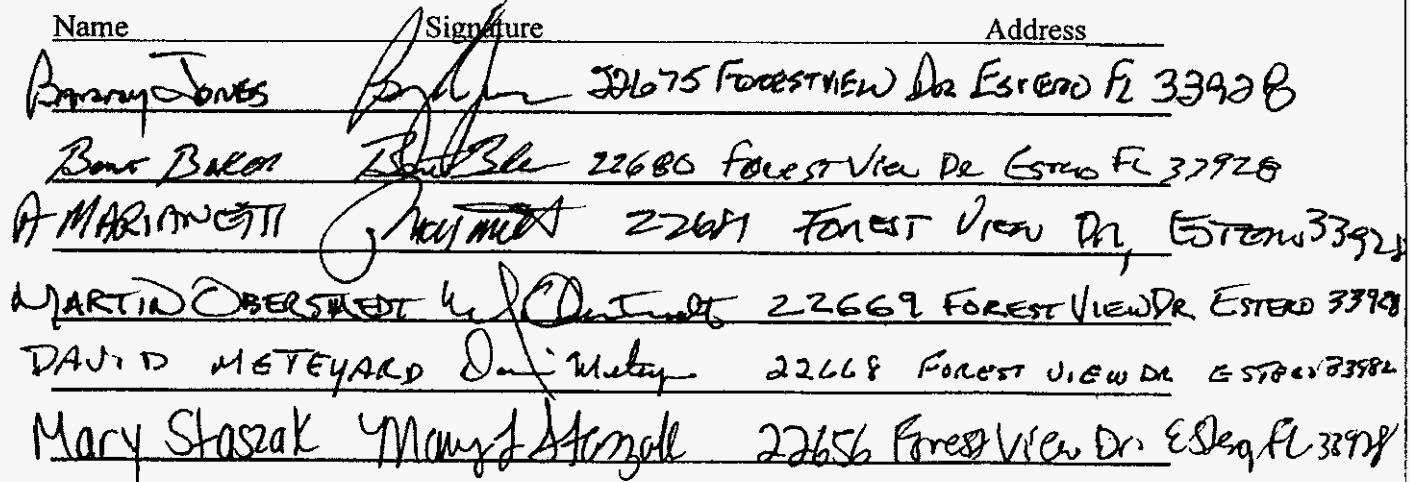 Name Signature Address
Barry Jones 22675 FORESTVIEW DR ESTERO FL 33928
Baker 22680 Forest View DR Estero FL 33928
A MARIANETTI FOREST VIEW DR, ESTERO 33928
MARTIN OBERSTAEDT 22669 FOREST VIEW DR ESTERO 33928
DAVID METEYARD 22668 FOREST VIEW DR ESTERO 33982
Mary Staszak Mary J Staszak 22656 Forest View Dr. FL 33928